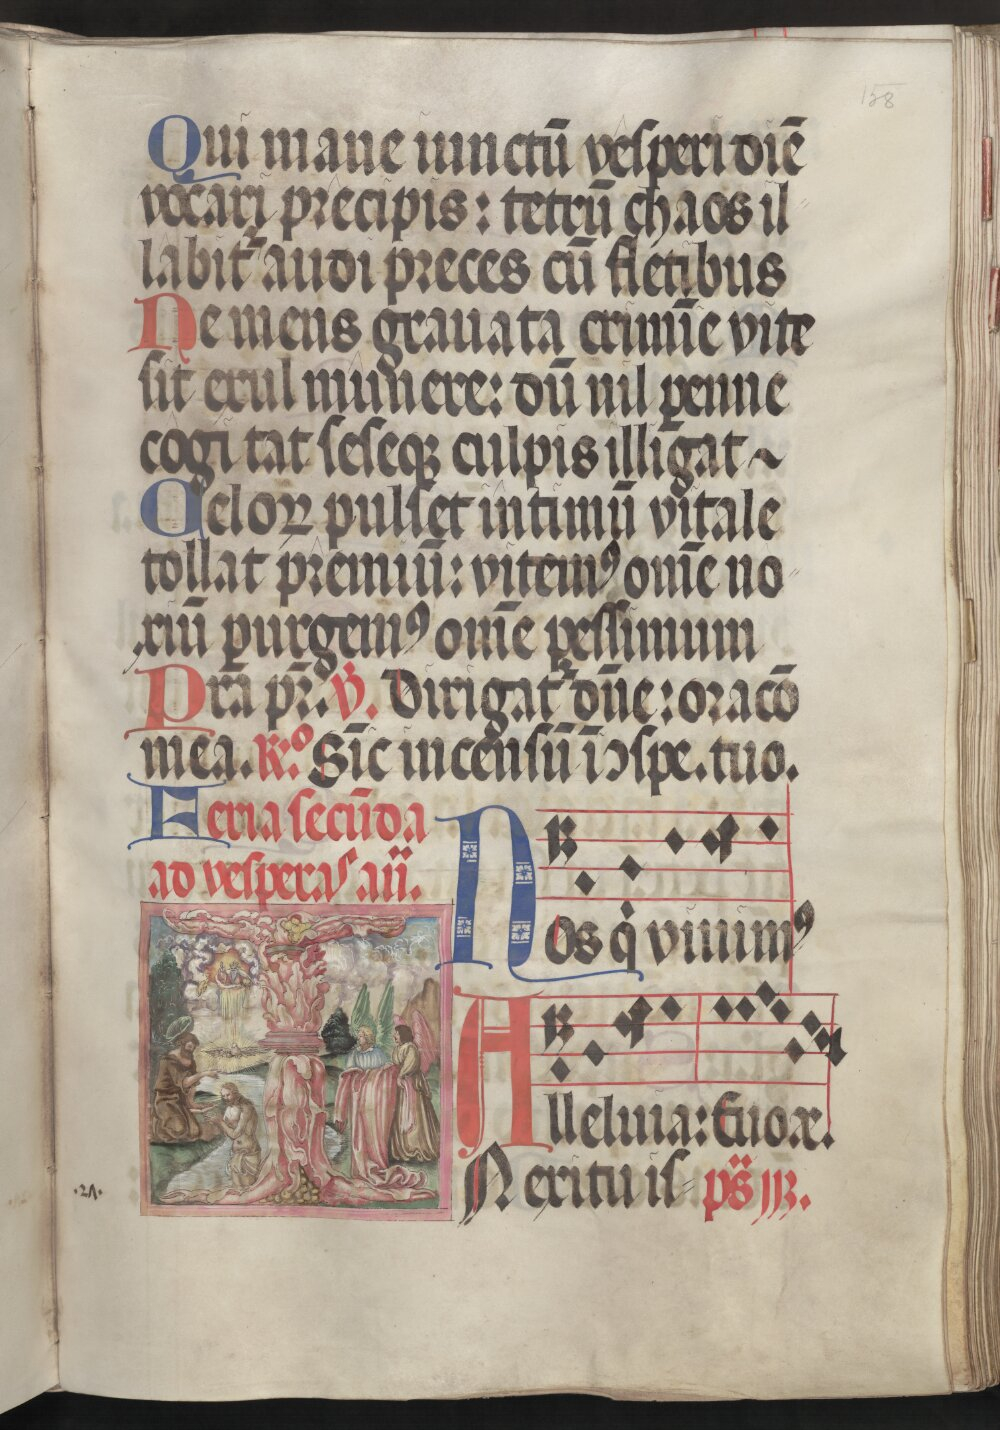 158
Qui mane iunctū vesperi diē
vocari precipis: tetrū chaos il
labit᷑ audi preces cū fletibus
Ne mens grauata crimīe vite
sit exul munere: dū nil ꝑenne
cogitat seseqꝫ culpis illigat ~
Celoꝝ pulset intimū vitale
tollat premiū: vitemꝰ omē no
xiū purgemꝰ omē pessimum
Pr̄a pr̄. ℣. Dirigat᷑ dn̄e: oracō
mea. R:º Sic incensū ī ↄspe. tuo.
Feria secūda
ad vesperas añ.
Nos q̇ viuimꝰ
Alleluia: Euoæ.
·21·
N exitu isl ps̄ ɉꝶ.